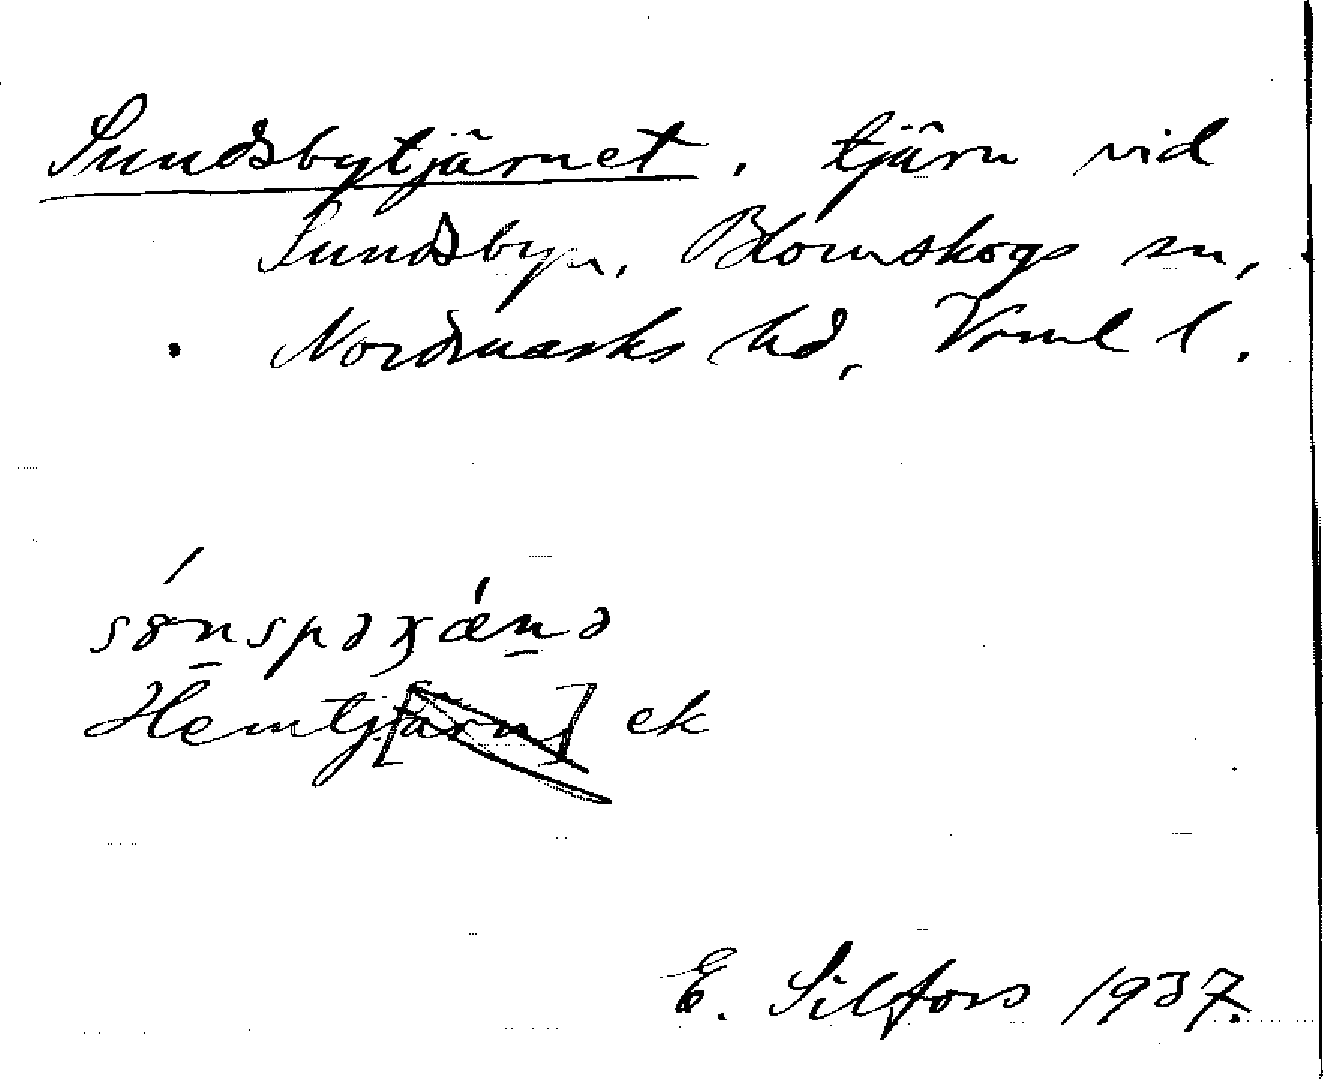 Sundsbytjärnet, tjärn vid
Sundsbyn, Blomskogs sn,
Nordmarks hd, Vrml l.
Hemtj[ärn] ek
E. Silfors 1937.